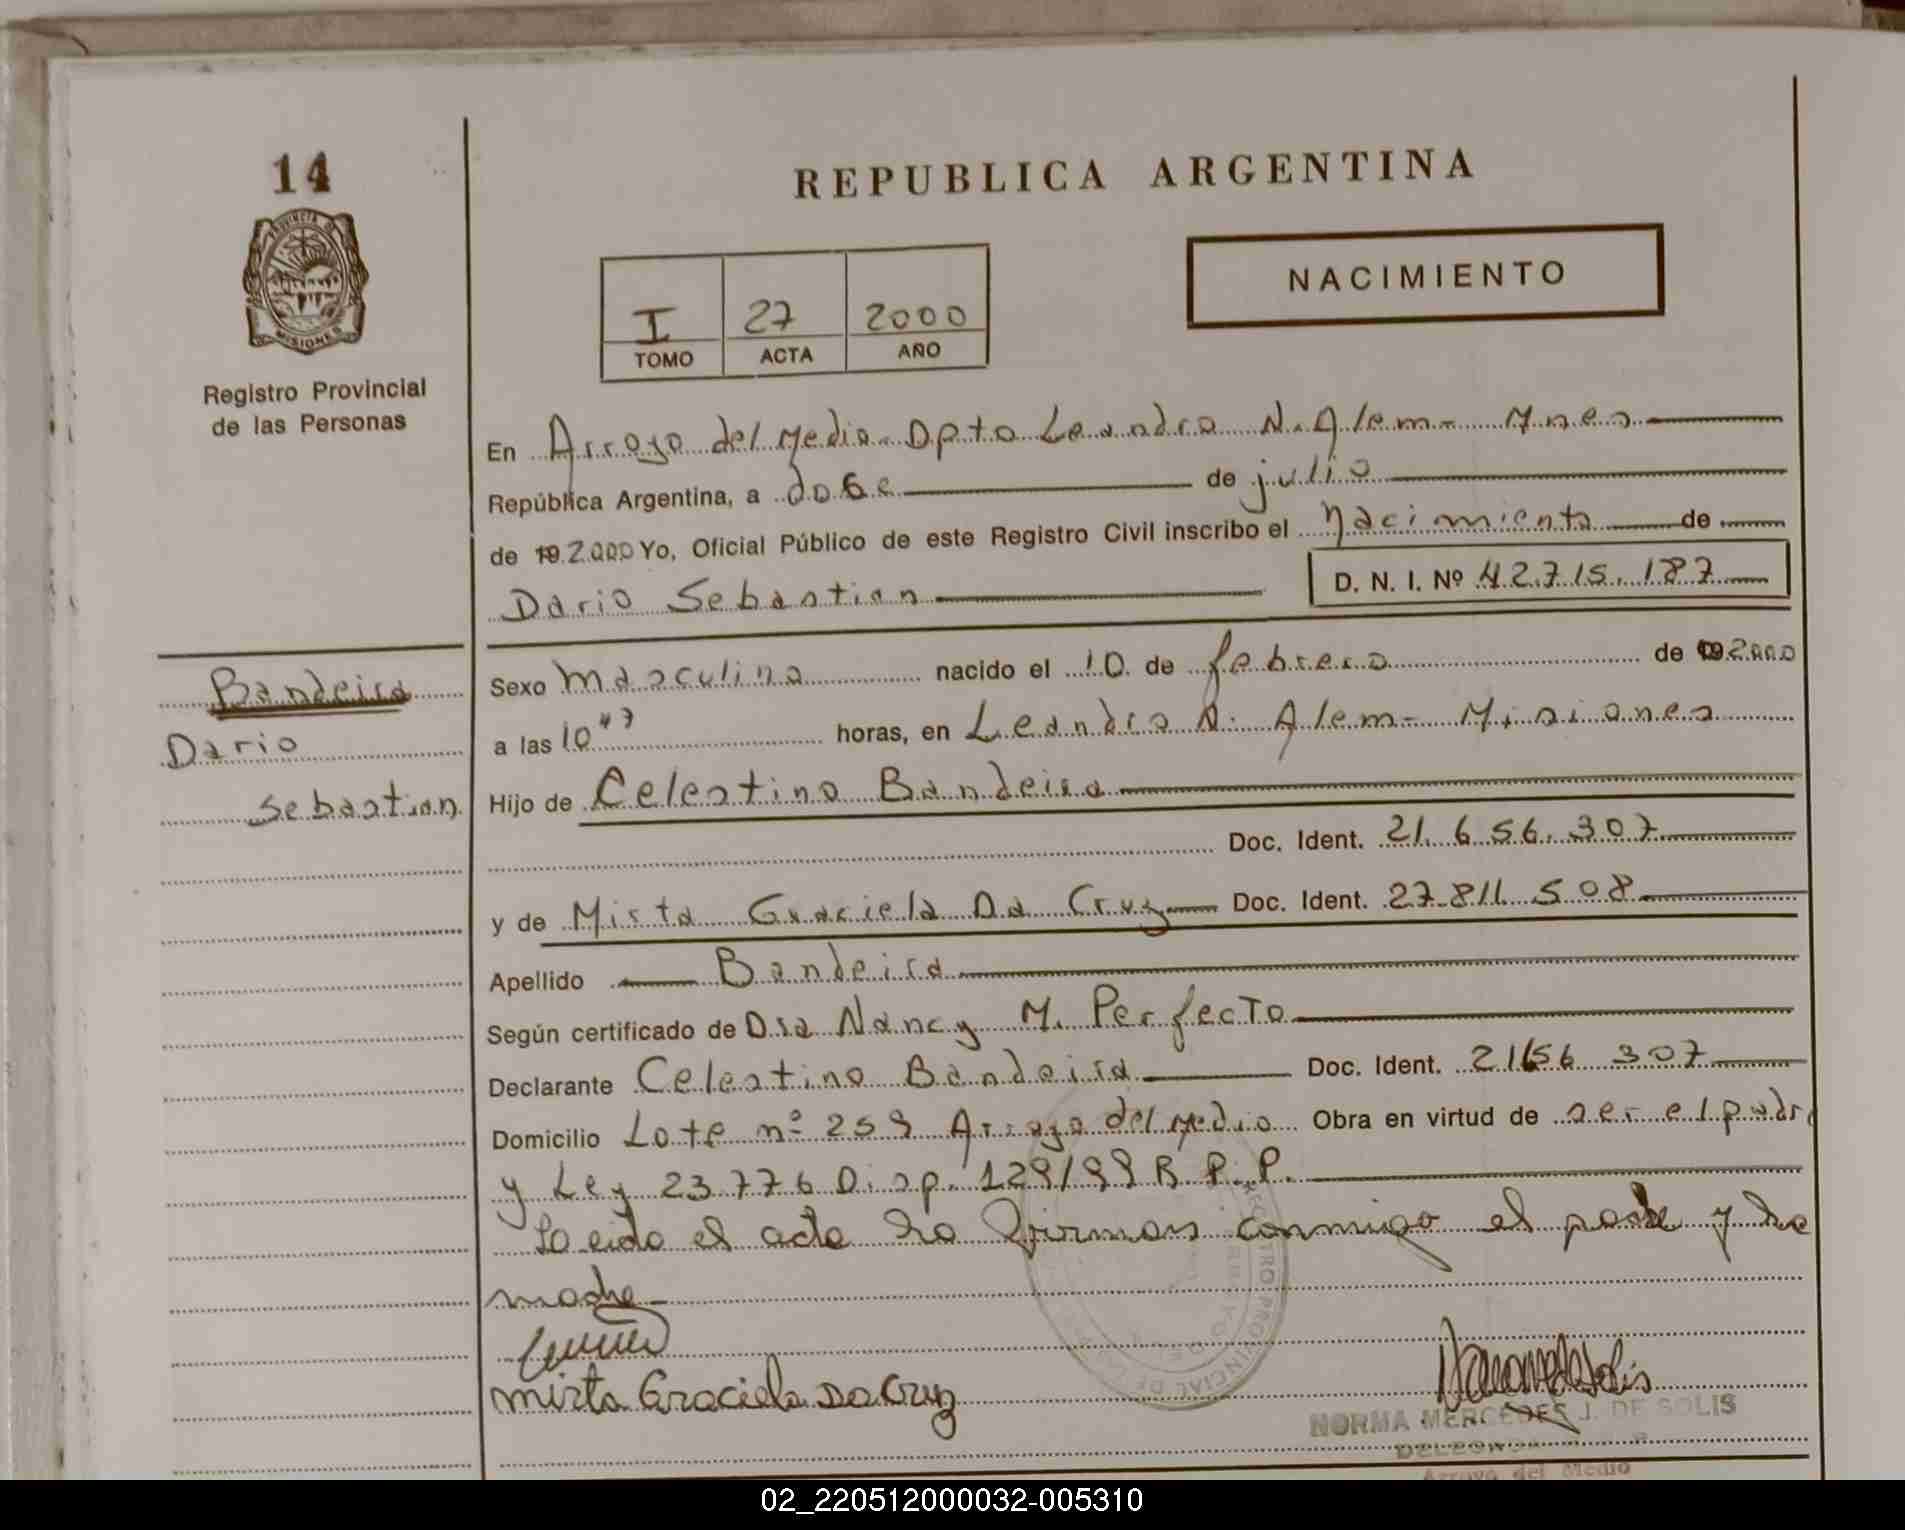 14
PROVINCIA DE
MISIONES
Registro Provincial
de las Personas
REPUBLICA ARGENTINA
NACIMIENTO
I 27 2000
TOMO ACTA AÑO
En Arroyo del Medio. Dpto Leandro N. Alem - Mnes
República Argentina, a doce de julio
de 19 2000 Yo, Oficial Público de este Registro Civil inscribo el nacimiento de
Dario Sebastian D. N. I. Nº 42.715.187
Bandeira
Dario
Sebastian
Sexo masculino nacido el 10 de febrero de 19 2000
a las 10 47 horas, en Leandro N. Alem - Misiones
Hijo de Celestino Bandeira
Doc. Ident. 21.656.307
y de Mirta Graciela Da Cruz Doc. Ident. 27.811.508
Apellido Bandeira
Según certificado de Dra Nancy M. Perfecto
Declarante Celestino Bandeira Doc. Ident. 21656 307
Domicilio Lote nº 259 Arroyo del Medio Obra en virtud de ser el padre
y Ley 23.776 Disp. 129/99 R.P.P.
Leida el acta la firman conmigo el padre y la
madre
Mirta Graciela Da Cruz
REGISTRO PROVINCIAL DE LAS
NORMA MERCEDES J. DE SOLIS
Arroyo del Medio
02_220512000032-005310